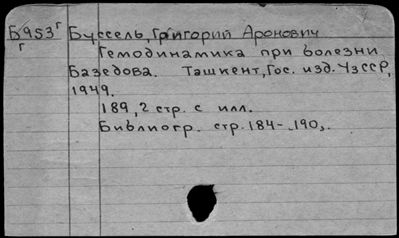 Б953г Буссель, Григорий Аронович
г
Гемодинамика при болезни
Базедова. Ташкент, Гос. изд. УзССР,
1949.
189, 2 стр. с илл.
Библиогр. стр. 184-190.